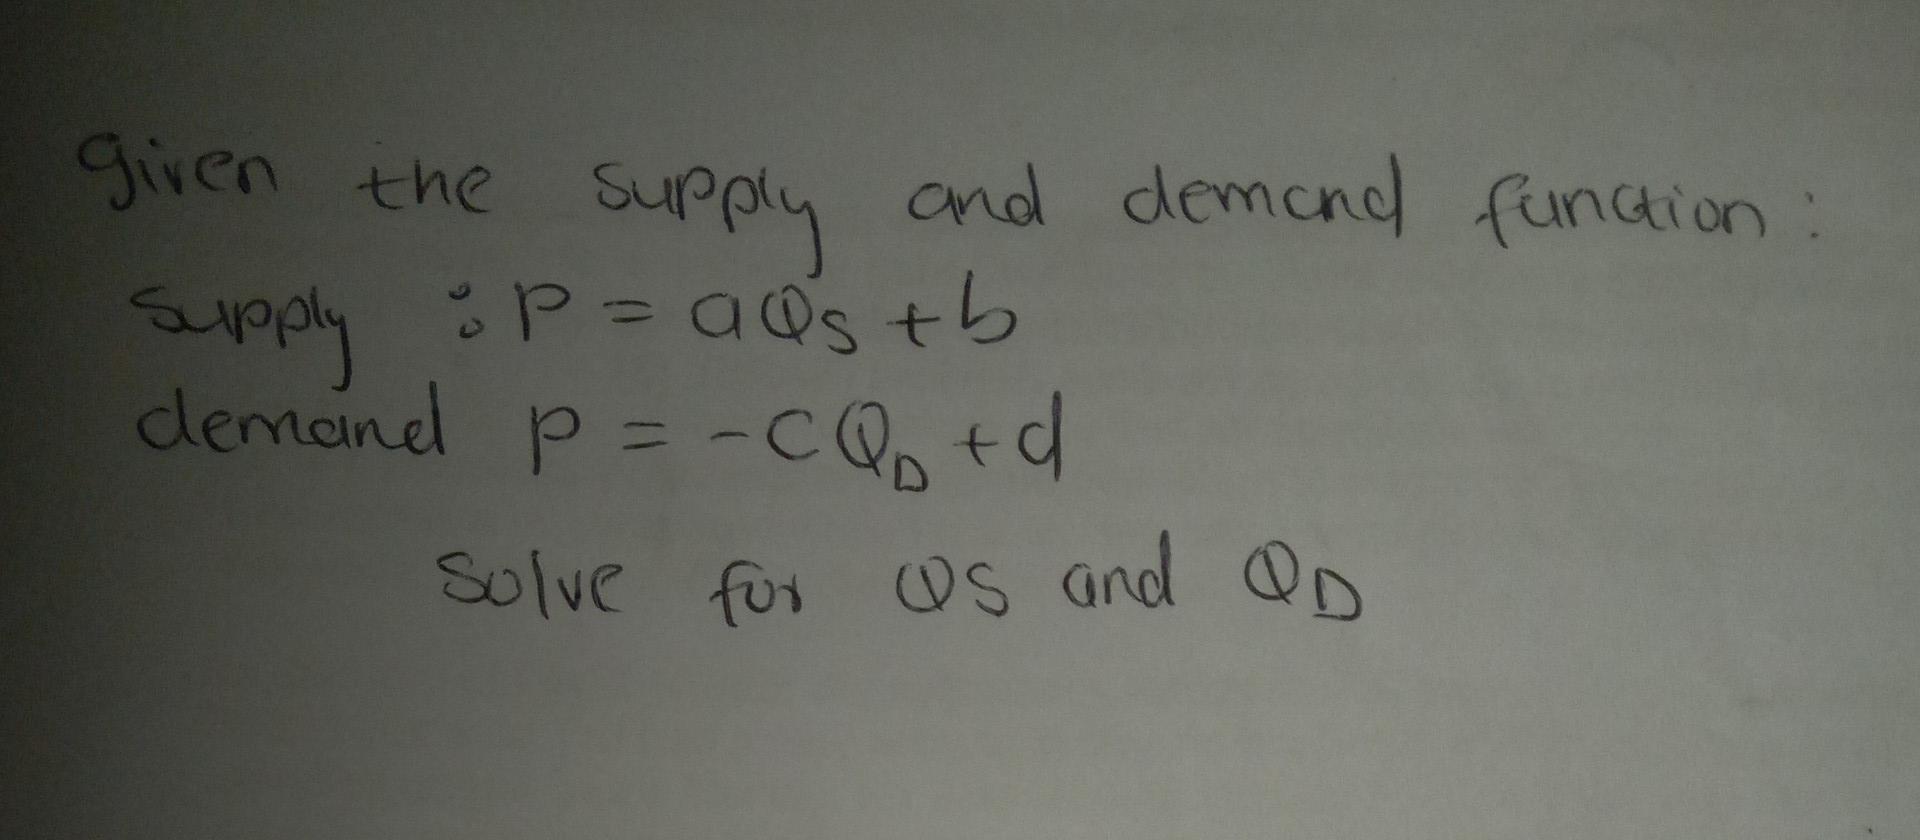 given the supply and demand function:
supply : P = aQs + b
demand P = -CQ_D + d
Solve for QS and Q_D